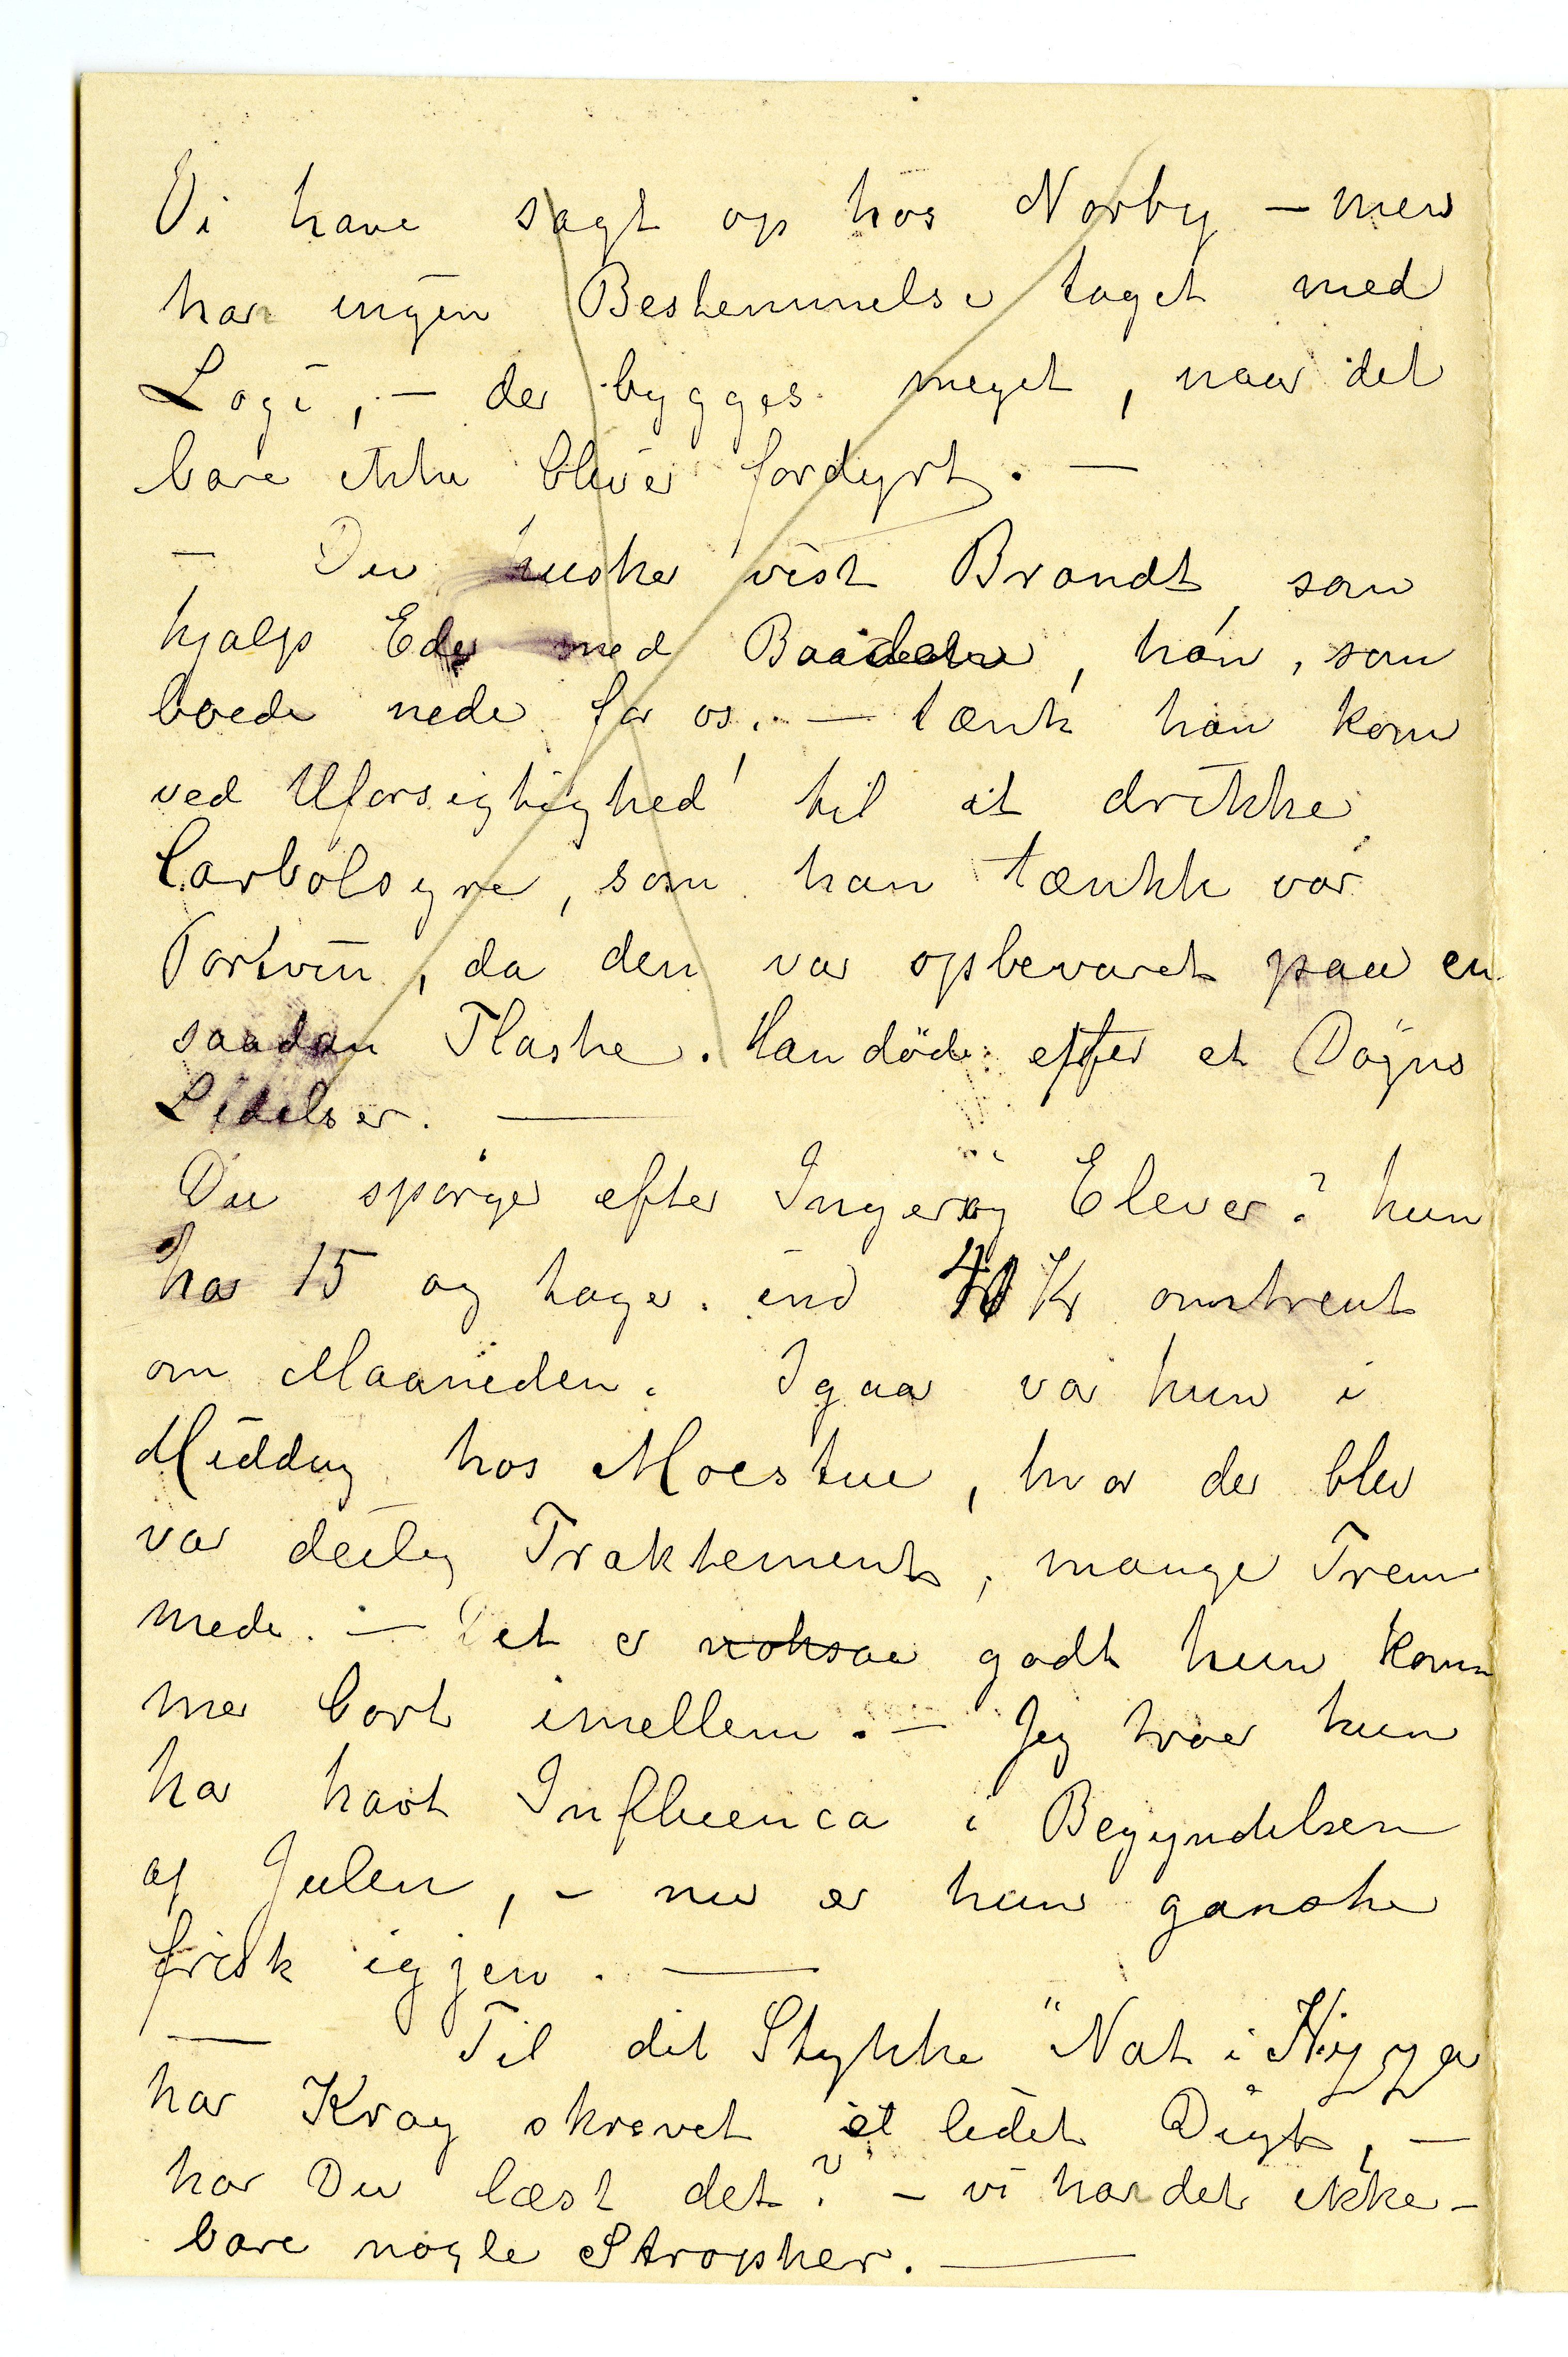 Vi have sagt op hos Norby – men
har ingen Bestemmelse taget med
Logi, – der bygges meget, naar det
bare ikke bliver fordyrt. –
– Du husker vist Brandt, som
hjalp Eder med Baadene, han, som
boede nede for os. – tænk han kom
ved Uforsigtighed til at drikke
Carbolsyre, som han tænkte var
Portvin, da den var opbevaret paa en
saadan Flaske. Han döde efter et Døgns
Lidelser. —
Du spørger efter Ingers Elever? hun
har 15 og tager ind 40 Kr omtrent
om Maaneden. Igaar var hun i
Middag hos Moestue, hvor der blev
var deilig Traktement, mange Frem
mede. – Det er noksaa godt hun kom
mer bort imellem. – Jeg troer hun
har havt Influenca i Begyndelsen
af Julen, – nu er hun ganske
frisk igjen. —
— Til dit Stykke "Nat i Nizza
har Krag skrevet et lidet Digt, –
har Du læst det? – vi har det ikke –
bare nogle Stropher. —